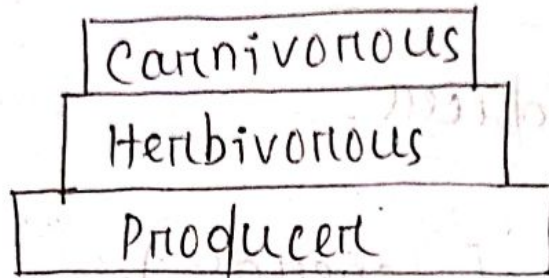 Carnivorous
Herbivorous
Producer